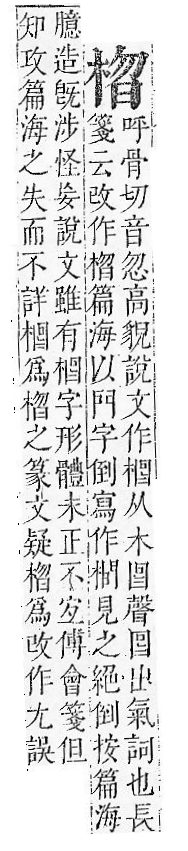 㮯
呼骨切音忽高貎說文作从木聲出氣詞也長
箋云改作㮯篇海以門字倒寫作見之絕倒按篇海
臆造旣涉怪妄說文雖有字形體未正不宐傅會箋但
知攻篇海之失而不詳爲㮯之篆文疑㮯爲改作尤誤